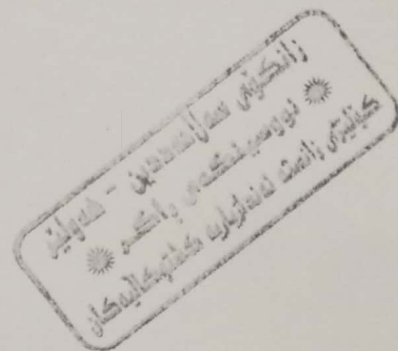 زانکۆی سەلاحەددین - هەولێر
نووسینگەی ڕاگر
کۆلێژی زانستە ئەندازیاریە کشتوکاڵیەکان